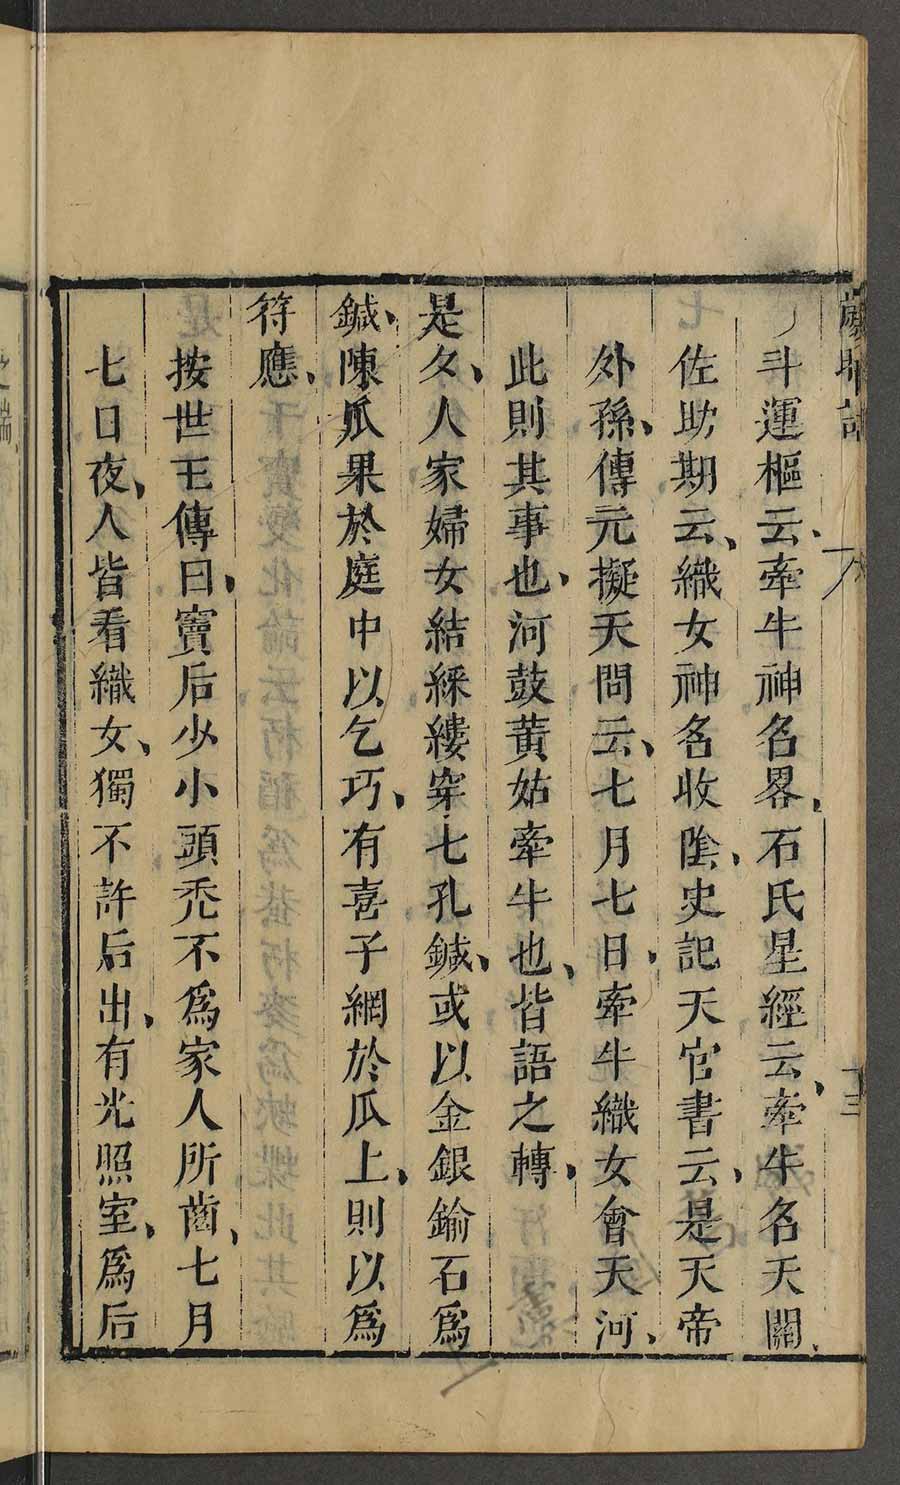 歲時記
十三
斗運樞云、牽牛神名畧、石氏星經云、牽牛名天關、
佐助期云、織女神名收陰、史記天官書云、是天帝
外孫、傳元擬天問云、七月七日、牽牛織女會天河、
此則其事也、河鼓黃姑牽牛也、皆語之轉、
是夕、人家婦女結綵縷穿七孔鍼、或以金銀鍮石為
鍼、陳瓜果於庭中以乞巧、有喜子網於瓜上、則以為
符應、
按世王傳曰、竇后少小頭禿不為家人所齒、七月
七日夜、人皆看織女、獨不許后出、有光照室、為后